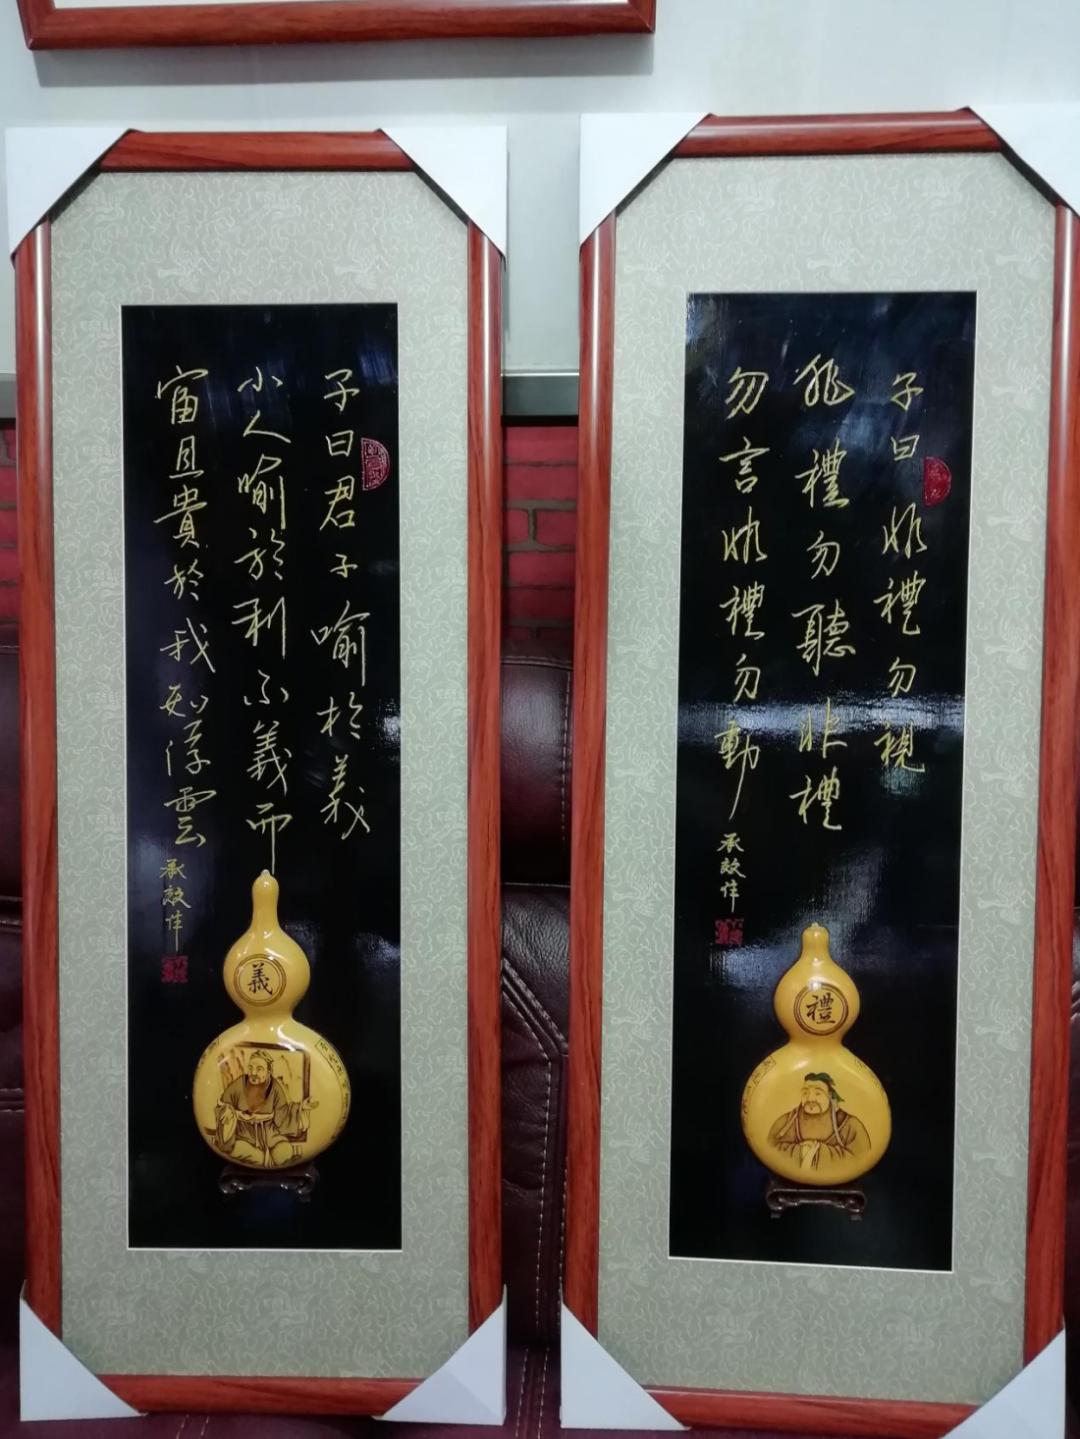 子曰君子喻於義
小人喻於利不義而
富且貴於我如浮雲
義
子曰非禮勿視
非禮勿聽非禮
勿言非禮勿動
禮